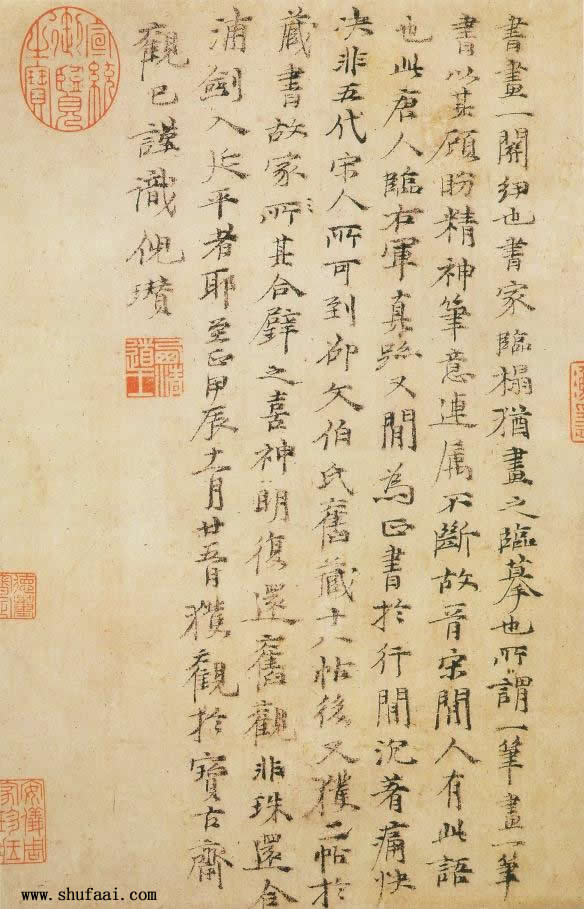 書畫一關紐也書家臨榻猶畫之臨摹也所謂一筆畫一筆
書以其顧盼精神筆意連属不斷故晉宋間人有此語
也此唐人臨右軍真跡又間為正書於行間沉著痛快
决非五代宋人所可到卲文伯氏舊蔵十八帖後又獲二帖於
蔵書故家所其合璧之喜神明復還舊觀非珠還合
浦劍入延平者耶至正甲辰十一月廿五日獲觀於寶古齋
觀已謹識倪瓚
宣統御覽之寶
安儀周家珍藏
www.shufaai.com